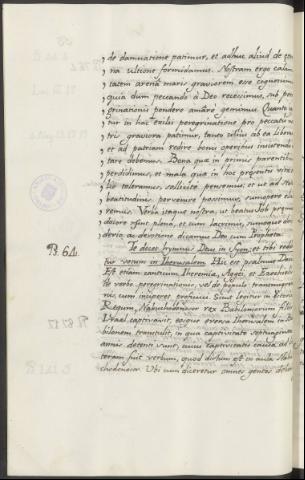 de damnatione patimur, et adhuc aliud de ęter
na ultione formidamus. Nostram ergo calami
tatem arena maris graviorem esse cognoscimus
quia dum peccando à Deo recessimus, sub pere
grinationis pondere amarò gemimus. Quanto
tur in hac exilij peregrinatione pro peccatis
tris graviora patimur, tanto citius ab ea libera
et ad patriam redire bonis operibus
tare debemus. Bona quæ in primis parentibus
perdidimus, et mala quæ in hoc præsenti
lio toleramus, sollicitè pensemus, et ut ad
beatitudinis pervenire possimus,
remus. Verba itaque nostra, ut beatus Job
dolore sint plena, et cum lacrimis,
devotione dicamus Deo cum Propheta:
Ps. 64. Te decet hymnus Deus in Syon, et tibi redde
tur votum in Iherusalem. Hic est psalmus David
Est etiam canticum Iheremiæ, Aggei, et Ezechielis
de verbo peregrinationis, vel de populo transmigratio
nis, cum inciperet proficisci. Sicut legitur in libro
Regum, Nabuchodonosor rex Babiloniorum filios
Israel captivavit, eosque eversa Iherusalem in Ba
bilonem transtulit, in qua captivitate septuaginta
annis detenti sunt, cuius captivitatis causa ad
verbum, quod dictum est in aula Nabu
chodonosor. Ubi cum diceretur omnes gentes